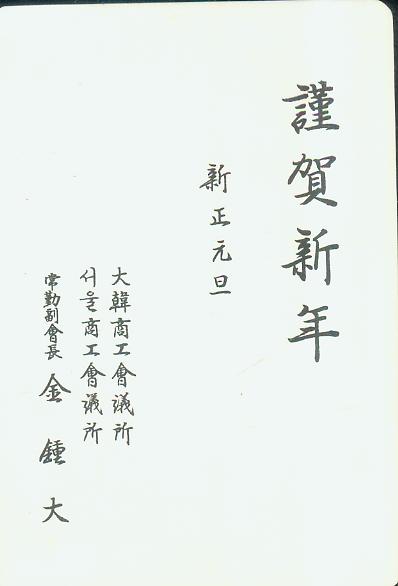 謹賀新年
新正元旦
大韓商工會議所
서울商工會議所
常勤副會長 金鍾大